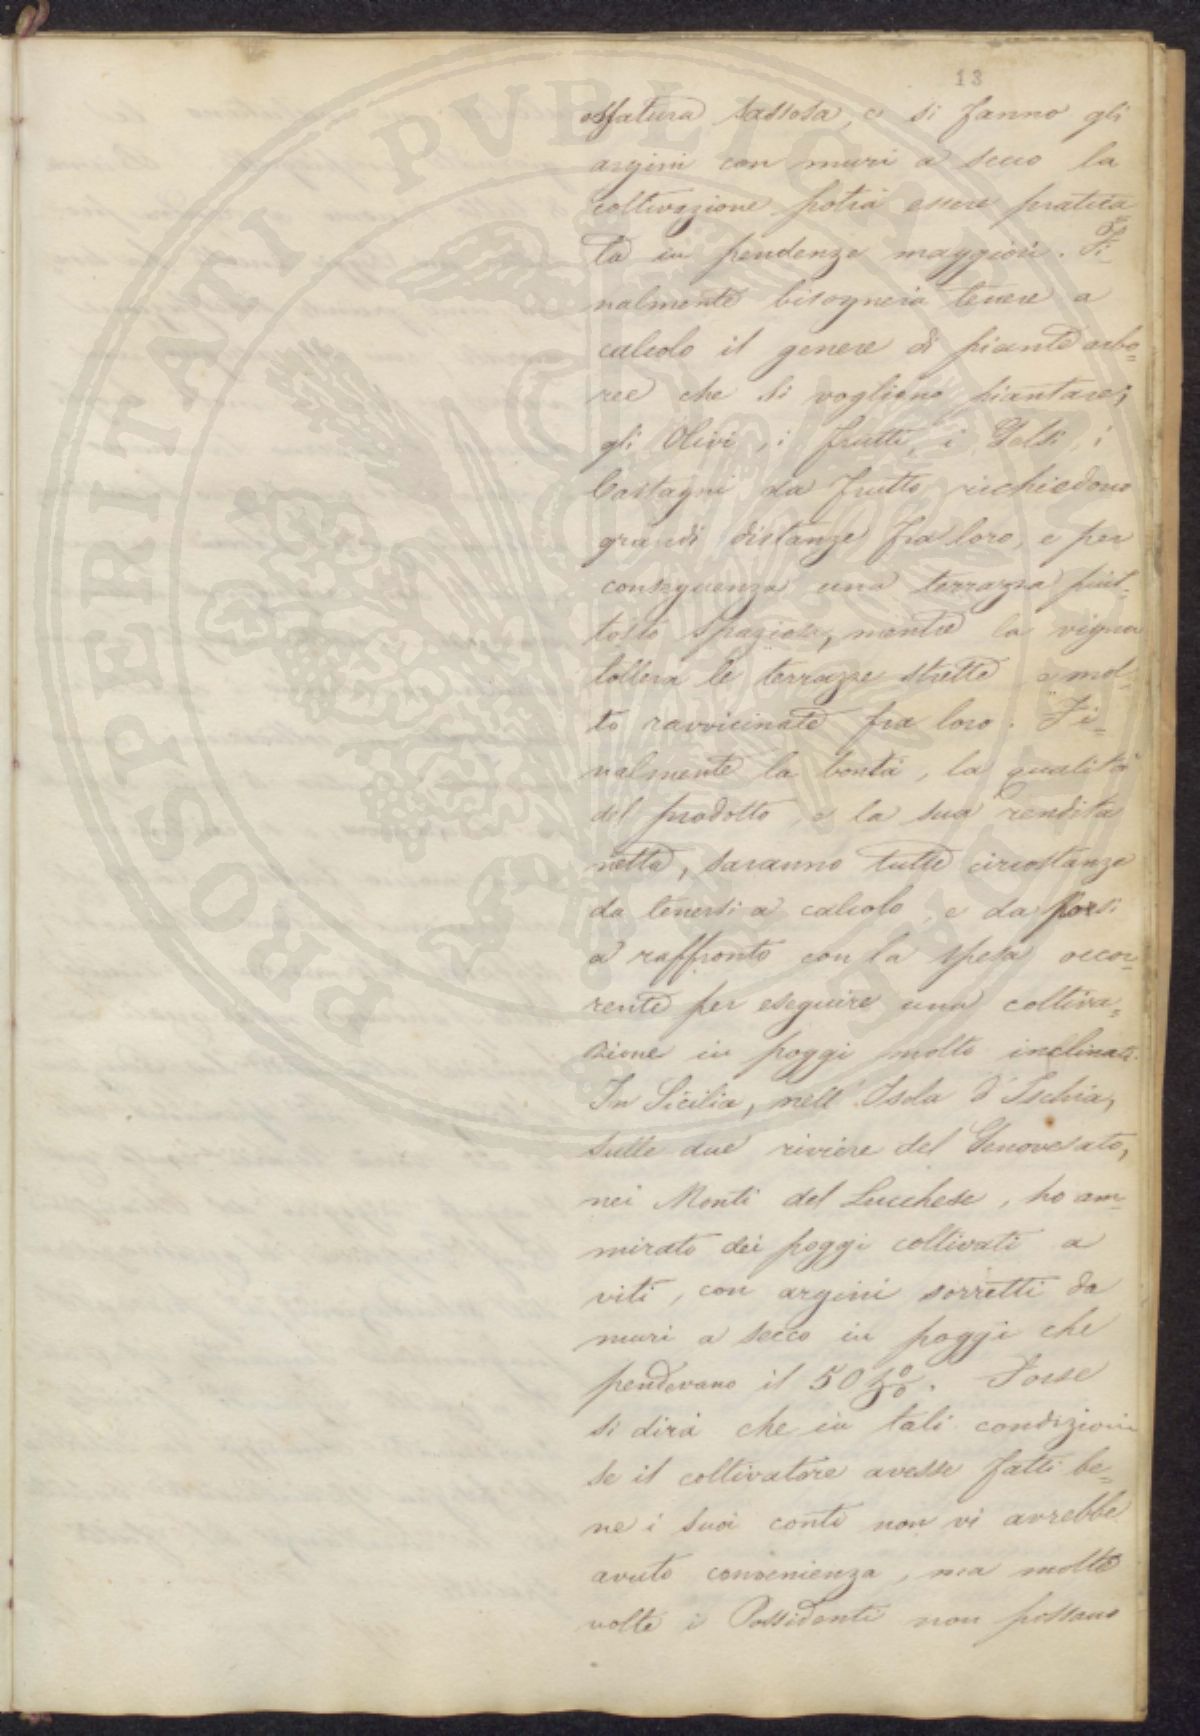 13
ossatura sassosa, e si fanno gli
argini con muri a secco la
coltivazione potrà essere pratica=
ta in pendenze maggiori. Fi=
nalmente bisognerà tenere a
calcolo il genere di piante arbo=
ree che si vogliono piantare;
gli Olivi, i frutti, i Gelsi, i
Castagni da frutto richiedono
grandi distanze fra loro, e per
conseguenza una terrazza piut=
tosto spaziosa, mentre la vigna
tollera le terrazze strette e mol=
to ravvicinate fra loro. Fi=
nalmente la bontà, la qualità
del prodotto, e la sua rendita
netta, saranno tutte circostanze
da tenersi a calcolo, e da porsi
a raffronto con la spesa occor=
rente per eseguire una coltiva=
zione in poggi molto inclinati.
In Sicilia, nell'Isola d'Ischia,
sulle due riviere del Genovesato,
nei Monti del Lucchese, ho am=
mirato dei poggi coltivati a
viti, con argini sorretti da
muri a secco in poggi che
pendevano il 50 %. Forse
si dirà che in tali condizioni
se il coltivatore avesse fatti be=
ne i suoi conti non vi avrebbe
avuto convenienza, ma molte
volte i Possidenti non possano
PROSPERITATI PVBLICAE